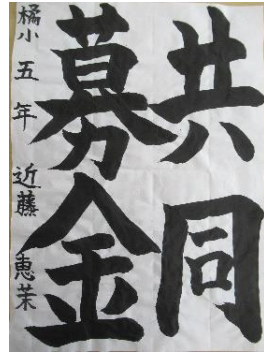 共同
募金
橘小五年近藤恵茉